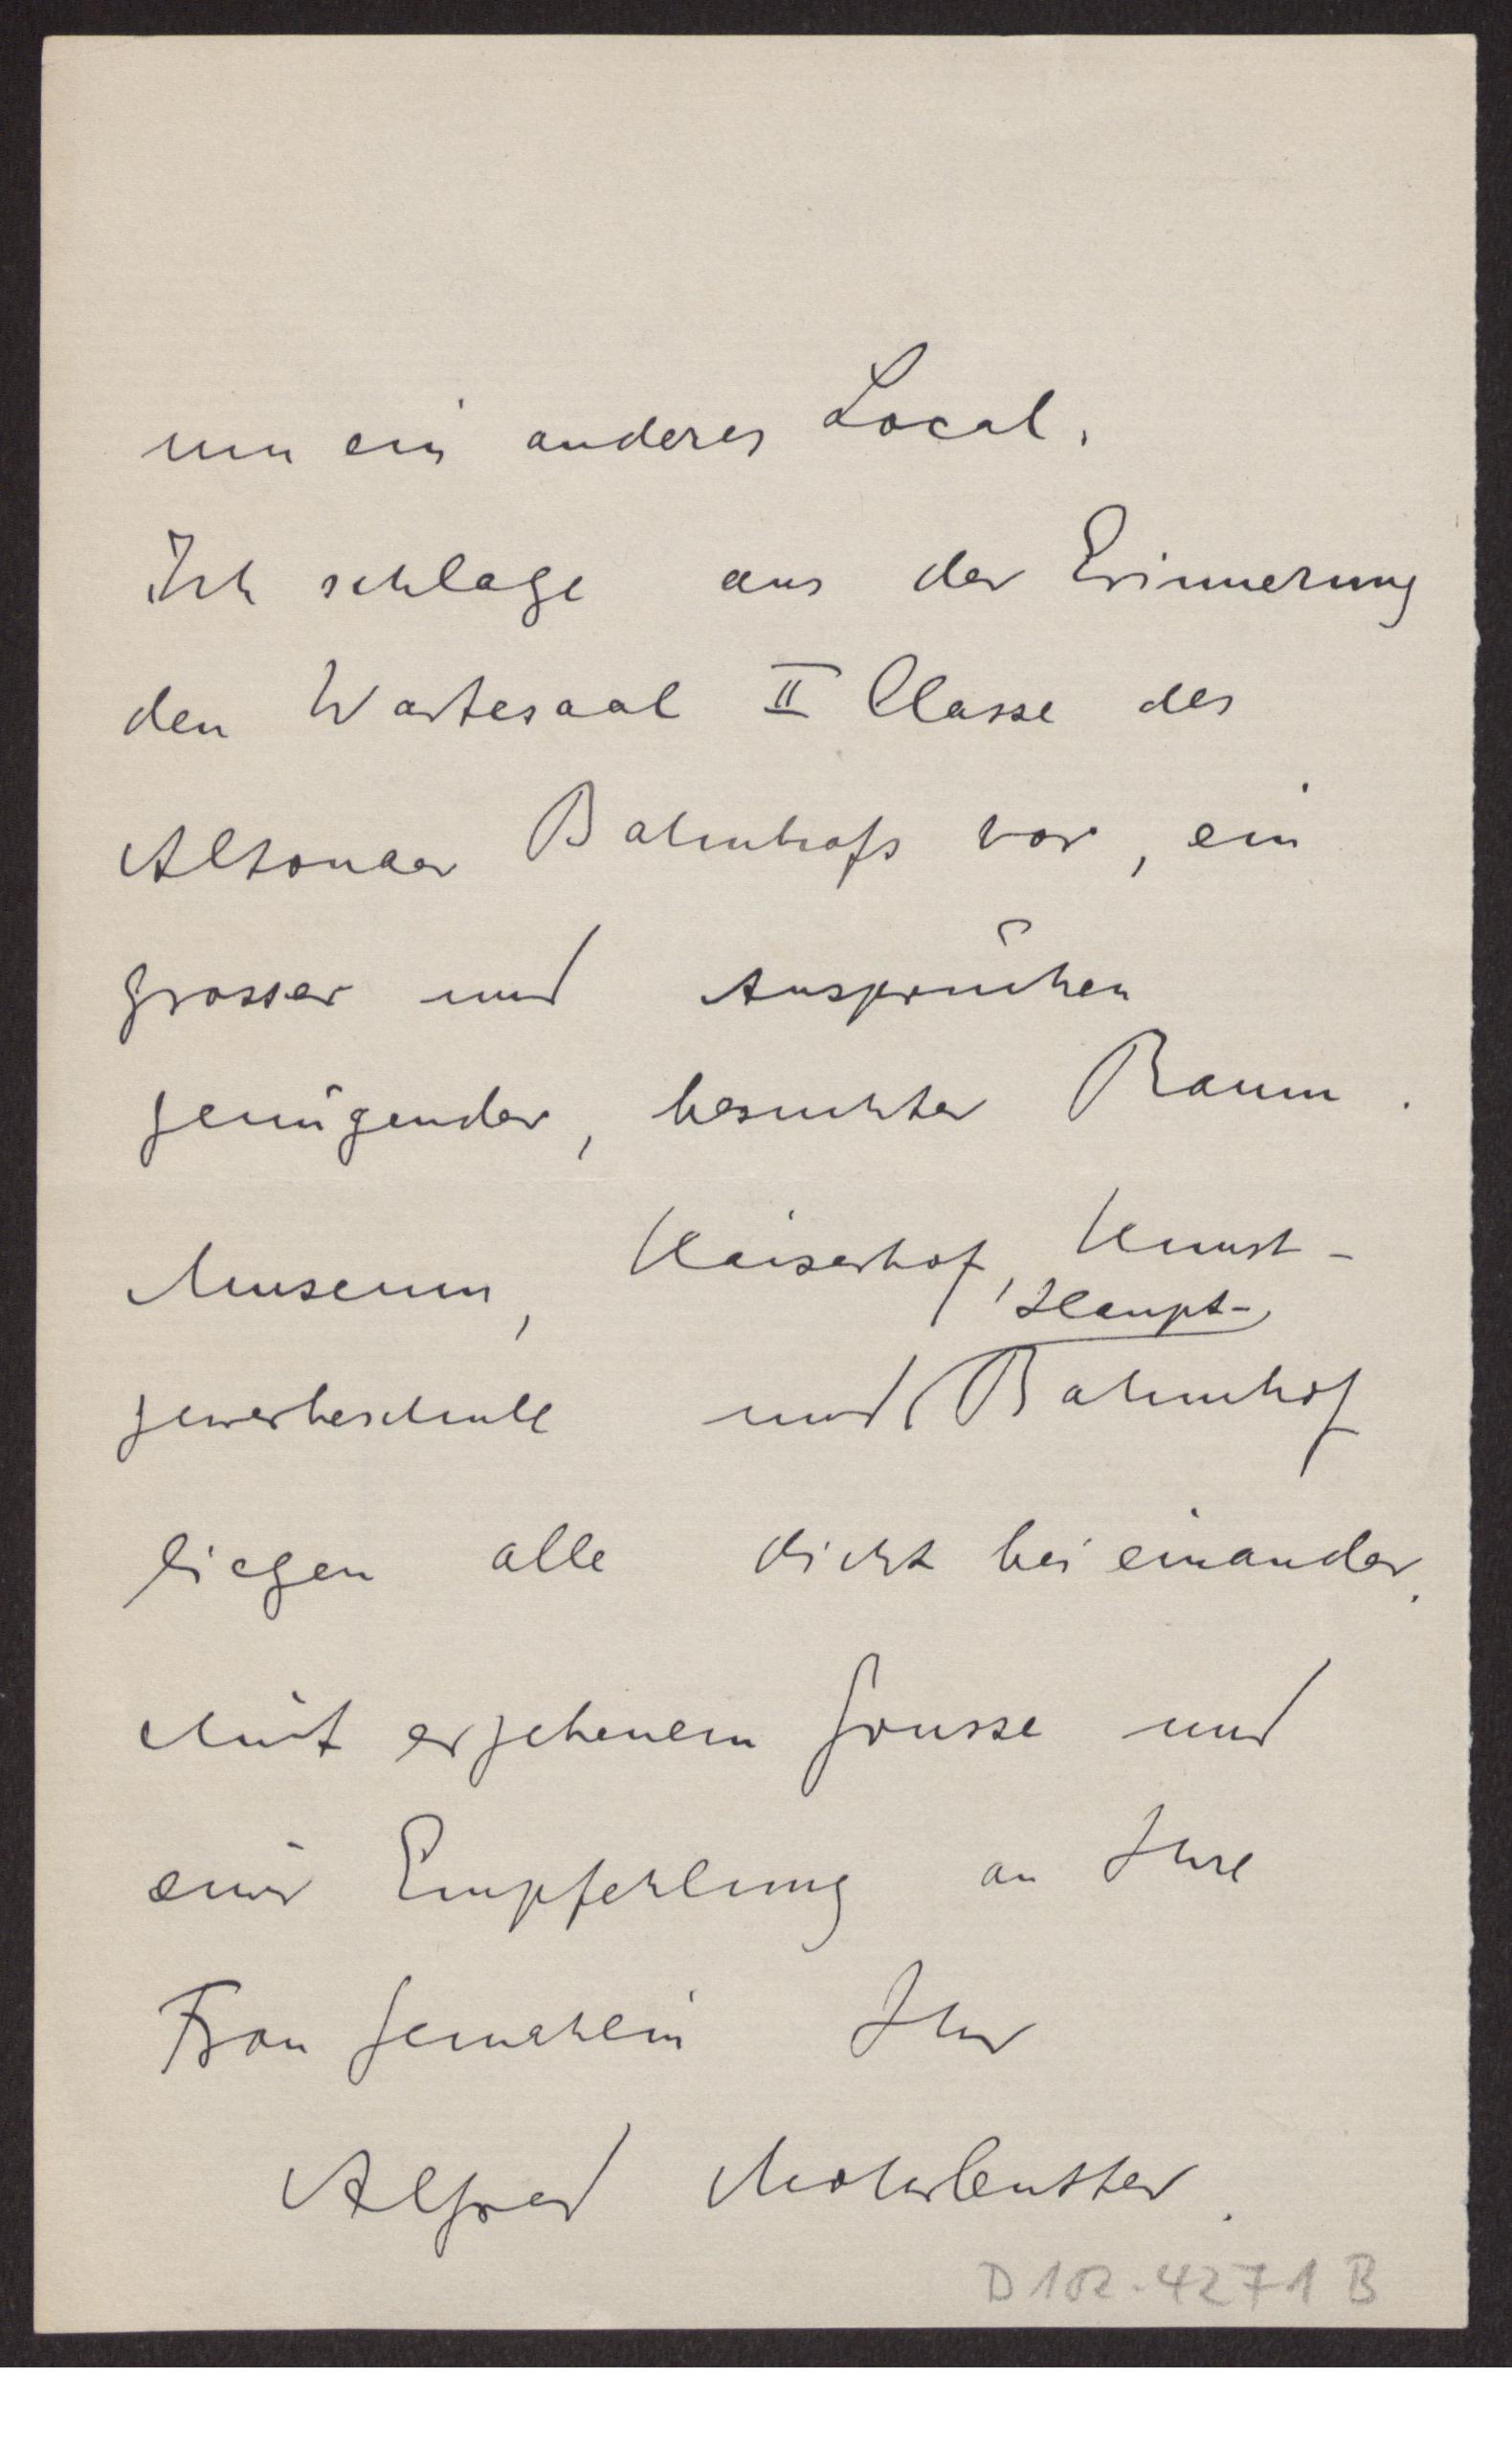 um ein anderes Local.
Ich schlage aus der Erinnerung
den Wartesaal II Classe des
Altonaer Bahnhofs vor, ein
grosser und Ansprüchen
genügender, besuchter Raum.
Museum, Kaiserhof, Kunst-
Haupt-
gewerbeschule und Bahnhof
liegen alle dicht bei einander.
Mit ergebenem Grusse und
einer Empfehlung an Ihre
Frau Gemahlin Ihr
Alfred Mohrbutter.
D 102.4271 B